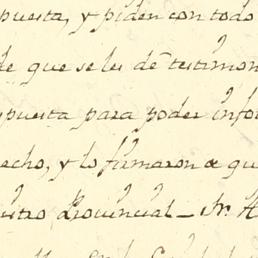 puesta, y piden con todo
de que se les dè testimon
puesta para poder info
echo, y lo firmaron a que
Provincial_ Fr.